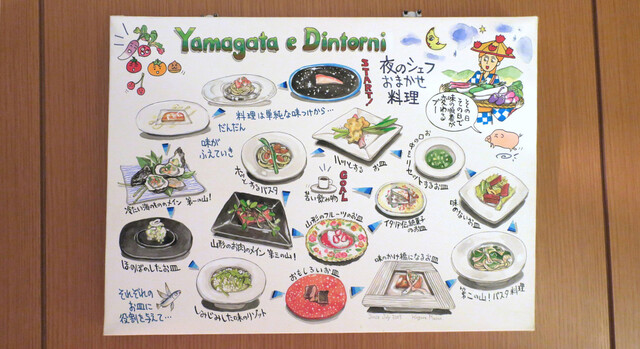 Yamagata e Dintorni
夜のシェフ
おまかせ
料理
START!
料理は単純な味つけから…
だんだん
味が
ふえていき
その日
その日で
味の順番が
変わる
冷たい海のもののメイン 第一の山!
ホッとするパスタ
ハッとする お皿
リセットするお皿
味のないお皿
GOAL
甘い飲み物
イタリア伝統菓子
のお皿
山形のフルーツのお皿
山形のお肉のメイン 第三の山!
ほのぼのしたお皿
しみじみした味のリゾット
おもしろいお皿
味のかけ橋になるお皿
第二の山! パスタ料理
それぞれの
お皿に
役割を与えて…